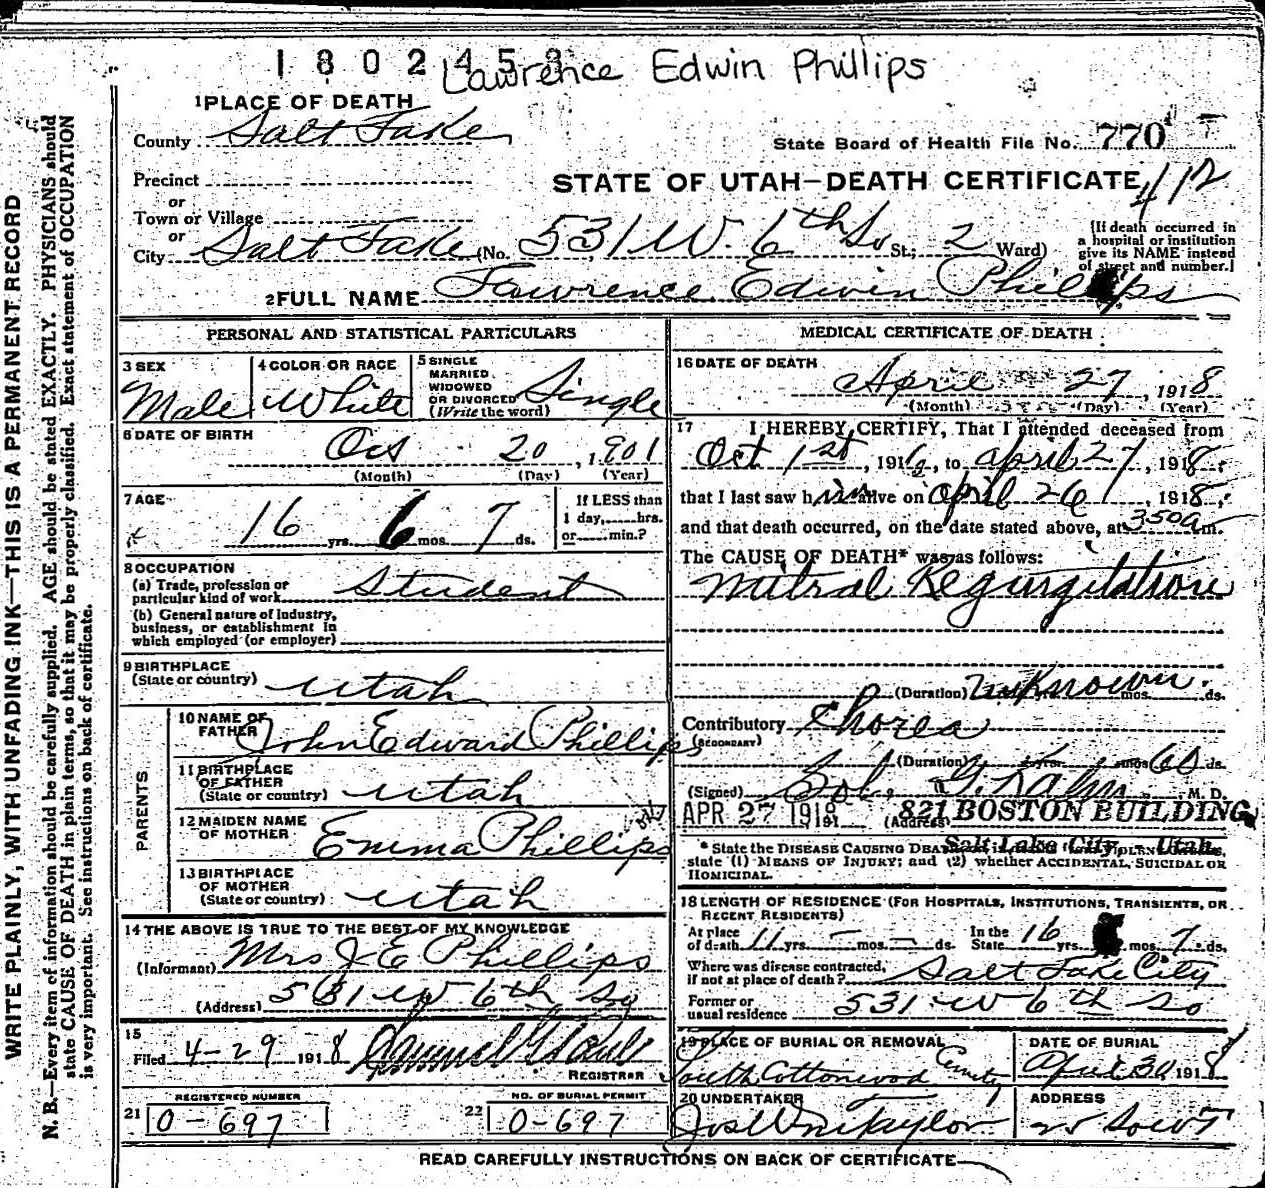 1802453
Lawrence Edwin Phillips
1 PLACE OF DEATH
County Salt Lake
State Board of Health File No. 770
Precinct
or
STATE OF UTAH—DEATH CERTIFICATE 412
Town or Village
or
City Salt Lake (No. 531 W. 6th So St.; 2 Ward)
[If death occurred in
a hospital or institution
give its NAME instead
of street and number.]
2 FULL NAME Lawrence Edwin Phillips
PERSONAL AND STATISTICAL PARTICULARS
3 SEX Male
4 COLOR OR RACE White
5 SINGLE
MARRIED
WIDOWED
OR DIVORCED
(Write the word) Single
6 DATE OF BIRTH
Oct 20, 1901
(Month) (Day) (Year)
7 AGE
16 yrs. 6 mos. 7 ds.
If LESS than
1 day, hrs.
or min.?
8 OCCUPATION
(a) Trade, profession or
particular kind of work Student
(b) General nature of industry,
business, or establishment in
which employed (or employer)
9 BIRTHPLACE
(State or country) Utah
PARENTS
10 NAME OF
FATHER John Edward Phillips
11 BIRTHPLACE
OF FATHER
(State or country) Utah
12 MAIDEN NAME
OF MOTHER Emma Phillips
13 BIRTHPLACE
OF MOTHER
(State or country) Utah
14 THE ABOVE IS TRUE TO THE BEST OF MY KNOWLEDGE
(Informant) Mrs J E Phillips
(Address) 531 W 6th So
15
Filed 4-29 1918
REGISTRAR
REGISTERED NUMBER
21 0-697
NO. OF BURIAL PERMIT
22 0-697
MEDICAL CERTIFICATE OF DEATH
16 DATE OF DEATH
April 27, 1918
(Month) (Day) (Year)
17 I HEREBY CERTIFY, That I attended deceased from
Oct 1st, 1916, to April 27, 1918,
that I last saw him alive on April 26, 1918,
and that death occurred, on the date stated above, at 350a m.
The CAUSE OF DEATH* was as follows:
Mitral Regurgitation
(Duration) Unknown mos. ds.
Contributory Chorea
(SECONDARY)
(Duration) yrs. mos 60 ds.
(Signed) Sol. G. Kahn M. D.
APR 27 1918 (Address) 821 BOSTON BUILDING,
Salt Lake City - Utah.
* State the DISEASE CAUSING DEATH
state (1) MEANS OF INJURY; and (2) whether ACCIDENTAL, SUICIDAL OR
HOMICIDAL.
18 LENGTH OF RESIDENCE (FOR HOSPITALS, INSTITUTIONS, TRANSIENTS, OR
RECENT RESIDENTS)
At place
of death 11 yrs. — mos. — ds.
In the
State 16 yrs. mos. 7 ds.
Where was disease contracted,
if not at place of death? Salt Lake City
Former or
usual residence 531 W 6th So
19 PLACE OF BURIAL OR REMOVAL
South Cottonwood Cemetry
DATE OF BURIAL
April 30 1918
20 UNDERTAKER
Jos Wm Taylor
ADDRESS
READ CAREFULLY INSTRUCTIONS ON BACK OF CERTIFICATE
WRITE PLAINLY, WITH UNFADING INK—THIS IS A PERMANENT RECORD
N. B.—Every item of information should be carefully supplied. AGE should be stated EXACTLY. PHYSICIANS should
state CAUSE OF DEATH in plain terms, so that it may be properly classified. Exact statement of OCCUPATION
is very important. See instructions on back of certificate.